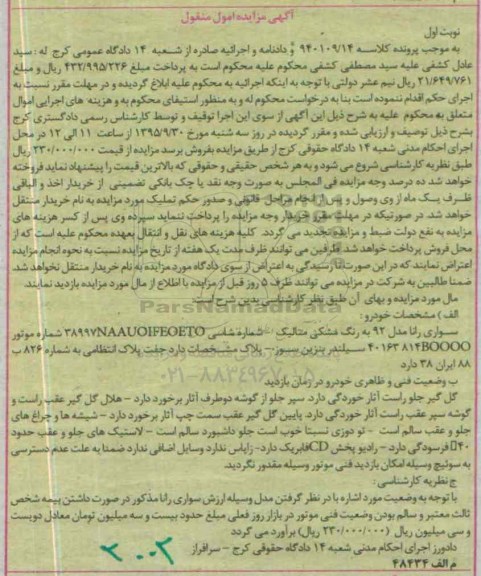 آگهی مزایده اموال منقول
نوبت اول
به موجب پرونده کلاسه ۹۴۰۱۰۹/۱۴ و دادنامه و اجرائیه صادره از شعبه ۱۴ دادگاه عمومی کرج له : سید
عادل کشفی علیه سید مصطفی کشفی محکوم علیه محکوم است به پرداخت مبلغ ۴۳۲/۹۹۵/۲۲۶ ریال و مبلغ
۲۱/۶۴۹/۷۶۱ ریال نیم عشر دولتی با توجه به اینکه اجرائیه به محکوم علیه ابلاغ گردیده و در مهلت مقرر نسبت به
اجرای حکم اقدام ننموده است بنا به درخواست محکوم له و به منظور استیفای محکوم به و هزینه های اجرایی اموال
متعلق به محکوم علیه به شرح ذیل این آگهی از سوی این اجرا توقیف و توسط کارشناس رسمی دادگستری کرج
بشرح ذیل توصیف و ارزیابی شده و مقرر گردیده در روز سه شنبه مورخ ۱۳۹۵/۹/۳۰ از ساعت ۱۱ الی ۱۲ در محل
اجرای احکام مدنی شعبه ۱۴ دادگاه حقوقی کرج از طریق مزایده بفروش برسد مزایده از قیمت ۲۳۰/۰۰۰/۰۰۰ ریال
طبق نظریه کارشناسی شروع می شود و به هر شخص حقیقی و حقوقی که بالاترین قیمت را پیشنهاد نماید فروخته
خواهد شد ده درصد وجه مزایده فی المجلس به صورت وجه نقد یا چک بانکی تضمینی از خریدار اخذ و الباقی
ظرف یک ماه از وی وصول و پس از انجام مراحل قانونی و صدور حکم تملیک مورد مزایده به نام خریدار منتقل
خواهد شد. در صورتیکه در مهلت مقرر خریدار وجه مزایده را پرداخت ننماید سپرده وی پس از کسر هزینه های
مزایده به نفع دولت ضبط و مزایده تجدید می گردد کلیه هزینه های نقل و انتقال بعهده محکوم علیه است که از
محل فروش پرداخت خواهد شد طرفین می توانند ظرف مدت یک هفته از تاریخ مزایده نسبت به نحوه انجام مزایده
اعتراض نمایند که در این صورت تا رسیدگی به اعتراض از سوی دادگاه مورد مزایده به نام خریدار منتقل نخواهد شد.
ضمنا طالبین به شرکت در مزایده می توانند ظرف ۵ روز قبل از مزایده با اطلاع از مال مورد مزایده بازدید نمایند.
مال مورد مزایده و بهای آن طبق نظر کارشناسی بدین شرح است
الف) مشخصات خودرو :
سواری رانا مدل ۹۲ به رنگ مشکی متالیک – شماره شاسی ۳۸۹۹۷NAAUOIFEOETO شماره موتور
۴۰۱۶۳ ۸۱۴BOOOO سیلندر بنزین سوز – پلاک مشخصات دارد جفت پلاک انتظامی به شماره ۸۲۶ ب
۸۸ ایران ۳۸ دارد
ParsNamadData
۰۲۱-۸۸۳۴۹۶۷۰-۵
ب وضعیت فنی و ظاهری خودرو در زمان بازدید
گل گیر جلو راست آثار خوردگی دارد سپر جلو از گوشه دوطرف آثار برخورد دارد – هلال گل گیر عقب راست و
گوشه سپر عقب راست آثار خوردگی دارد. پایین گل گیر عقب سمت چپ آثار برخورد دارد – شیشه ها و چراغ های
جلو و عقب سالم است - تو دوزی نسبتا خوب است جلو داشبورد سالم است – لاستیک های جلو و عقب حدود
۴۰٪ فرسودگی دارد – رادیو پخش CD فابریک دارد- زاپاس ندارد وسایل اضافی ندارد ضمنا به علت عدم دسترسی
به سوئیچ وسیله امکان بازدید فنی موتور وسیله مقدور نگردید.
ج نظریه کارشناسی :
با توجه به وضعیت مورد اشاره با در نظر گرفتن مدل وسیله ارزش سواری رانا مذکور در صورت داشتن بیمه شخص
ثالث معتبر و سالم بودن وضعیت فنی موتور در بازار روز فعلی مبلغ حدود بیست و سه میلیون تومان معادل دویست
و سی میلیون ریال (۲۳۰/۰۰۰/۰۰۰ ریال) برآورد می گردد
دادورز اجرای احکام مدنی شعبه ۱۴ دادگاه حقوقی کرج – سرافراز
م الف ۴۸۴۳۴